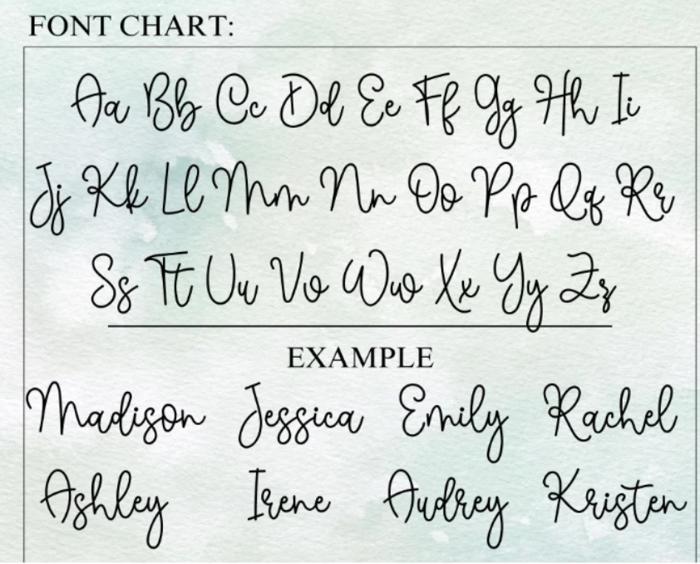 FONT CHART:
Aa Bb Cc Dd Ee Ff Gg Hh Ii
Jj Kk Ll Mm Nn Oo Pp Qq Rr
Ss Tt Uu Vv Ww Xx Yy Zz
EXAMPLE
Madison Jessica Emily Rachel
Ashley Irene Audrey Kristen